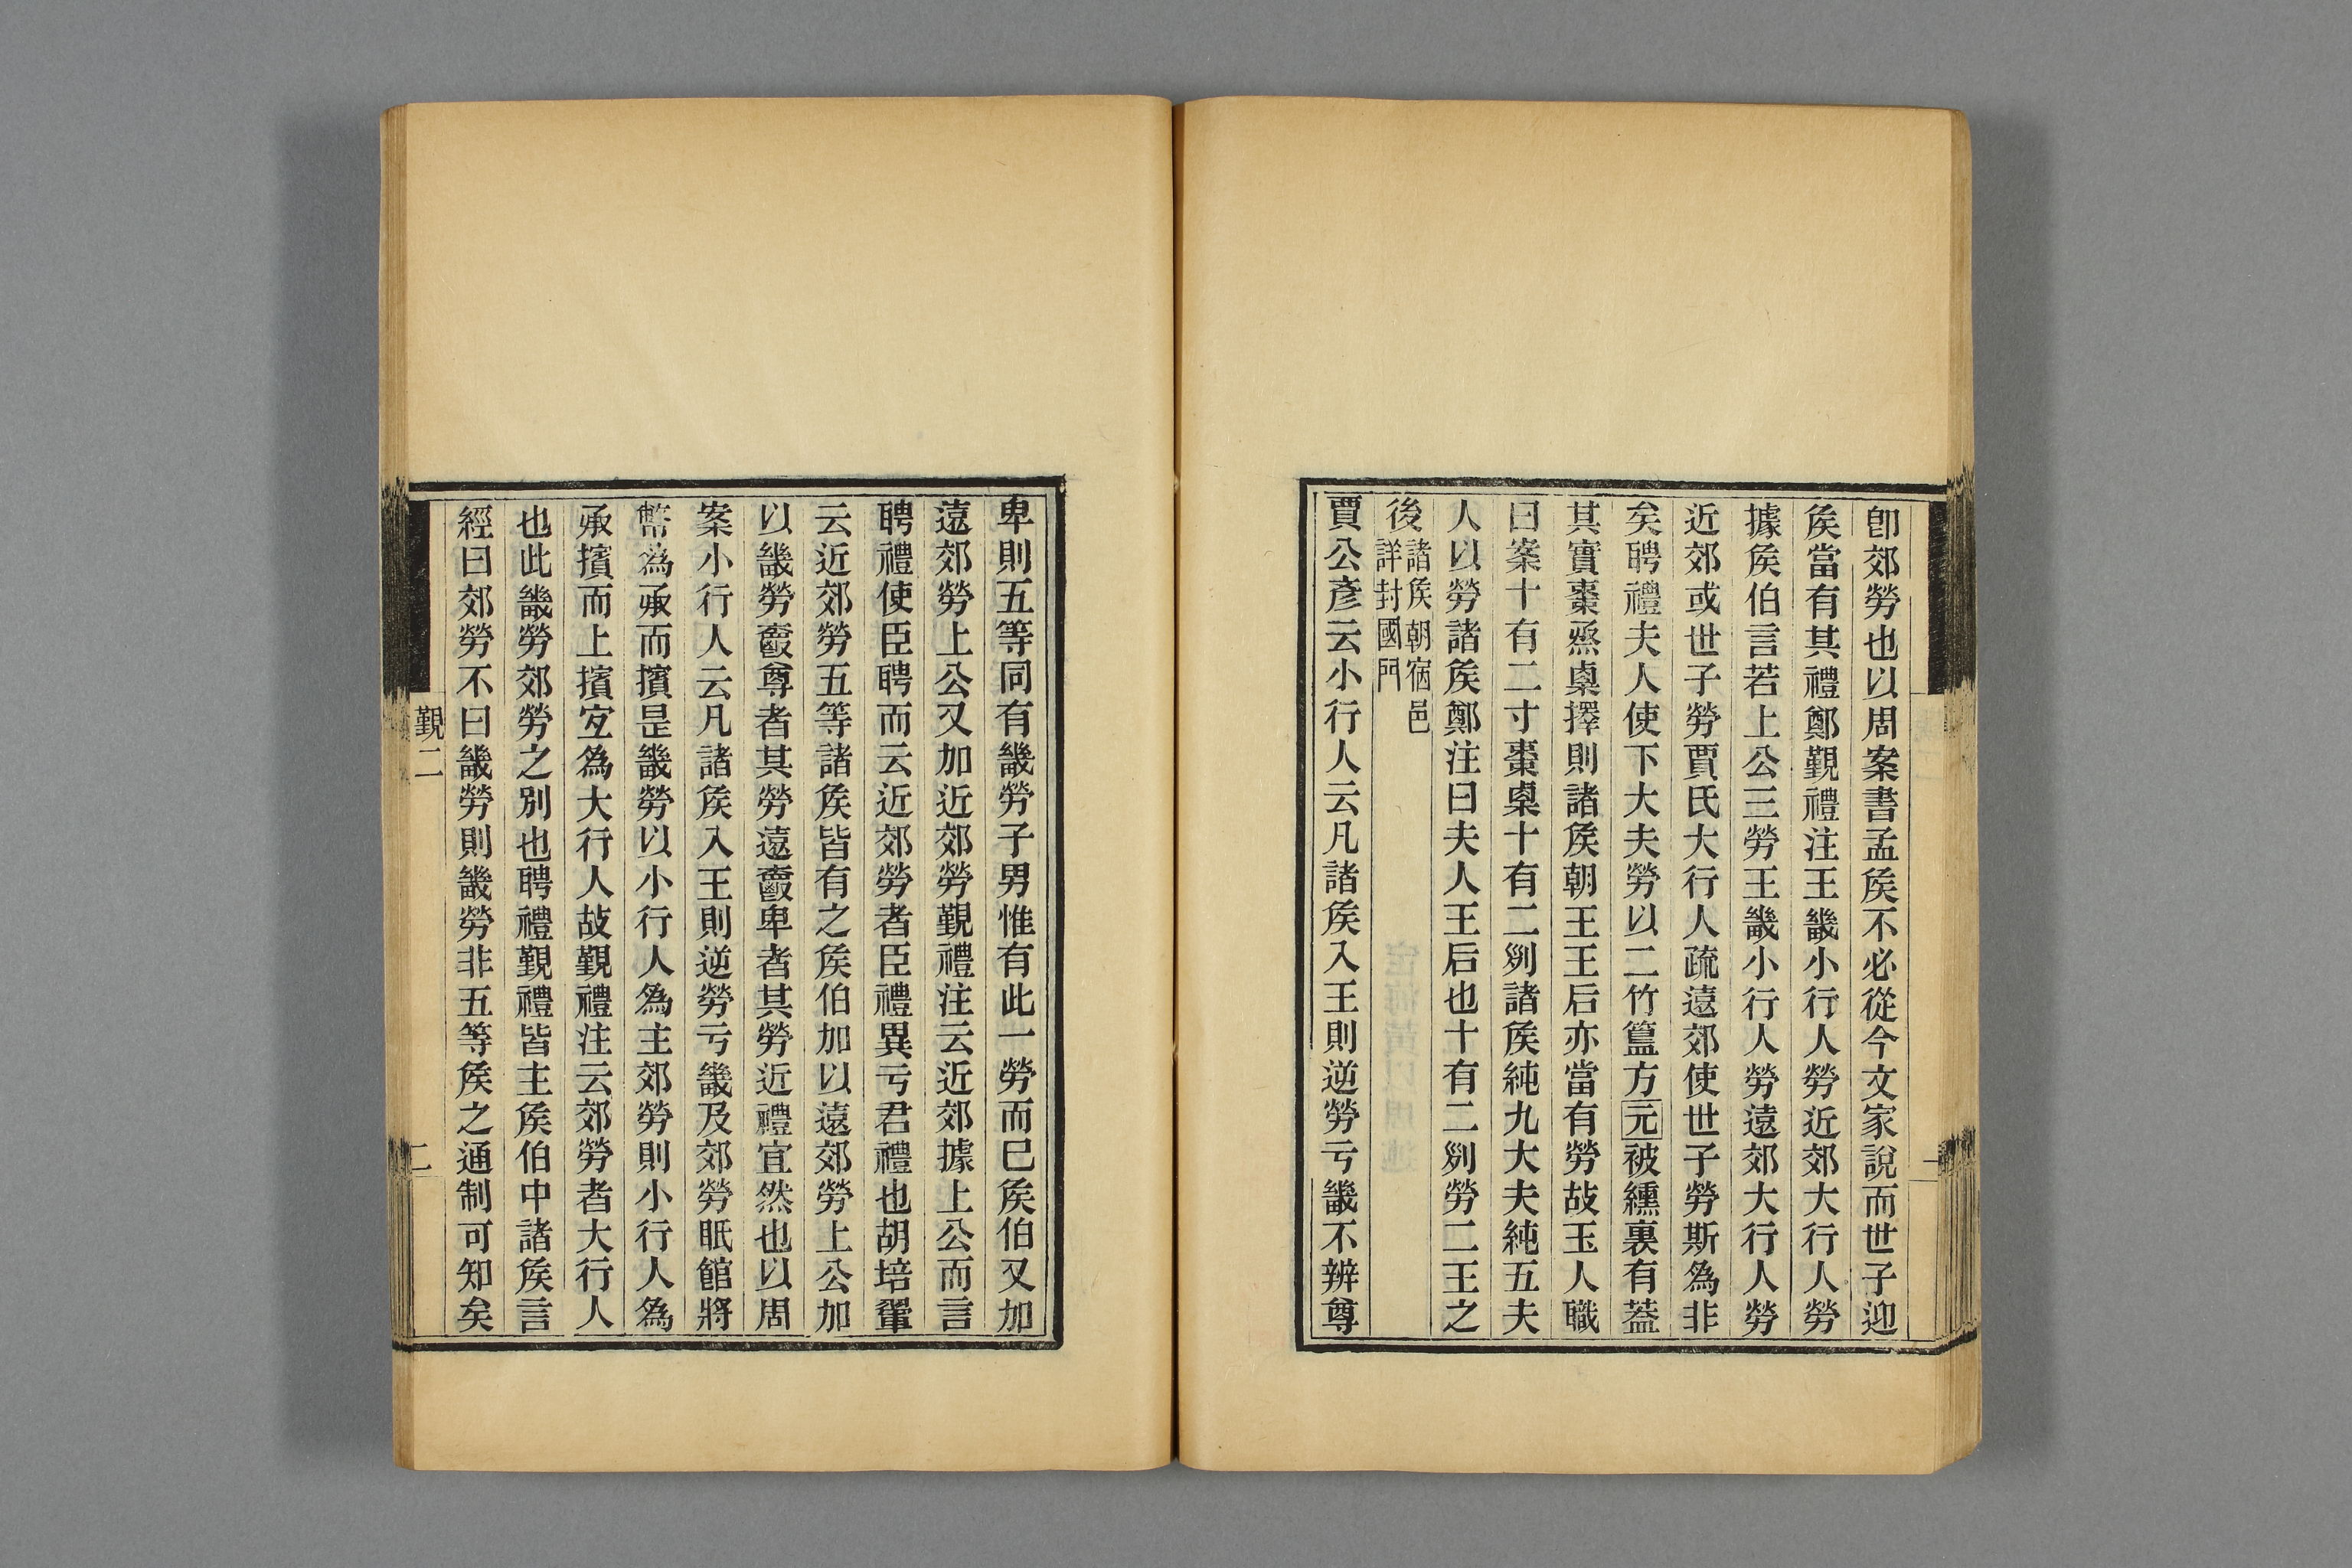 卽郊勞也以周案書孟矦不必從今文家說而世子迎
矦當有其禮鄭覲禮注王畿小行人勞近郊大行人勞
據矦伯言若上公三勞王畿小行人勞遠郊大行人勞
近郊或世子勞賈氏大行人疏遠郊使世子勞斯為非
矣聘禮夫人使下大夫勞以二竹簋方元被纁裏有葢
其實棗烝㮚擇則諸矦朝王王后亦當有勞故玉人職
曰案十有二寸棗㮚十有二列諸矦純九大夫純五夫
人以勞諸矦鄭注曰夫人王后也十有二列勞二王之
後諸矦朝宿邑
詳封國門
賈公彥云小行人云凡諸矦入王則逆勞亏畿不辨尊
卑則五等同有畿勞子男惟有此一勞而巳矦伯又加
遠郊勞上公又加近郊勞覲禮注云近郊據上公而言
聘禮使臣聘而云近郊勞者臣禮異亏君禮也胡培翬
云近郊勞五等諸矦皆有之矦伯加以遠郊勞上公加
以畿勞𧶠尊者其勞遠𧶠卑者其勞近禮宜然也以周
案小行人云凡諸矦入王則逆勞亏畿及郊勞眂館將
幣為承而擯是畿勞以小行人為主郊勞則小行人為
承擯而上擯㝎為大行人故覲禮注云郊勞者大行人
也此畿勞郊勞之別也聘禮覲禮皆主矦伯中諸矦言
經曰郊勞不曰畿勞則畿勞非五等矦之通制可知矣
覲二
二